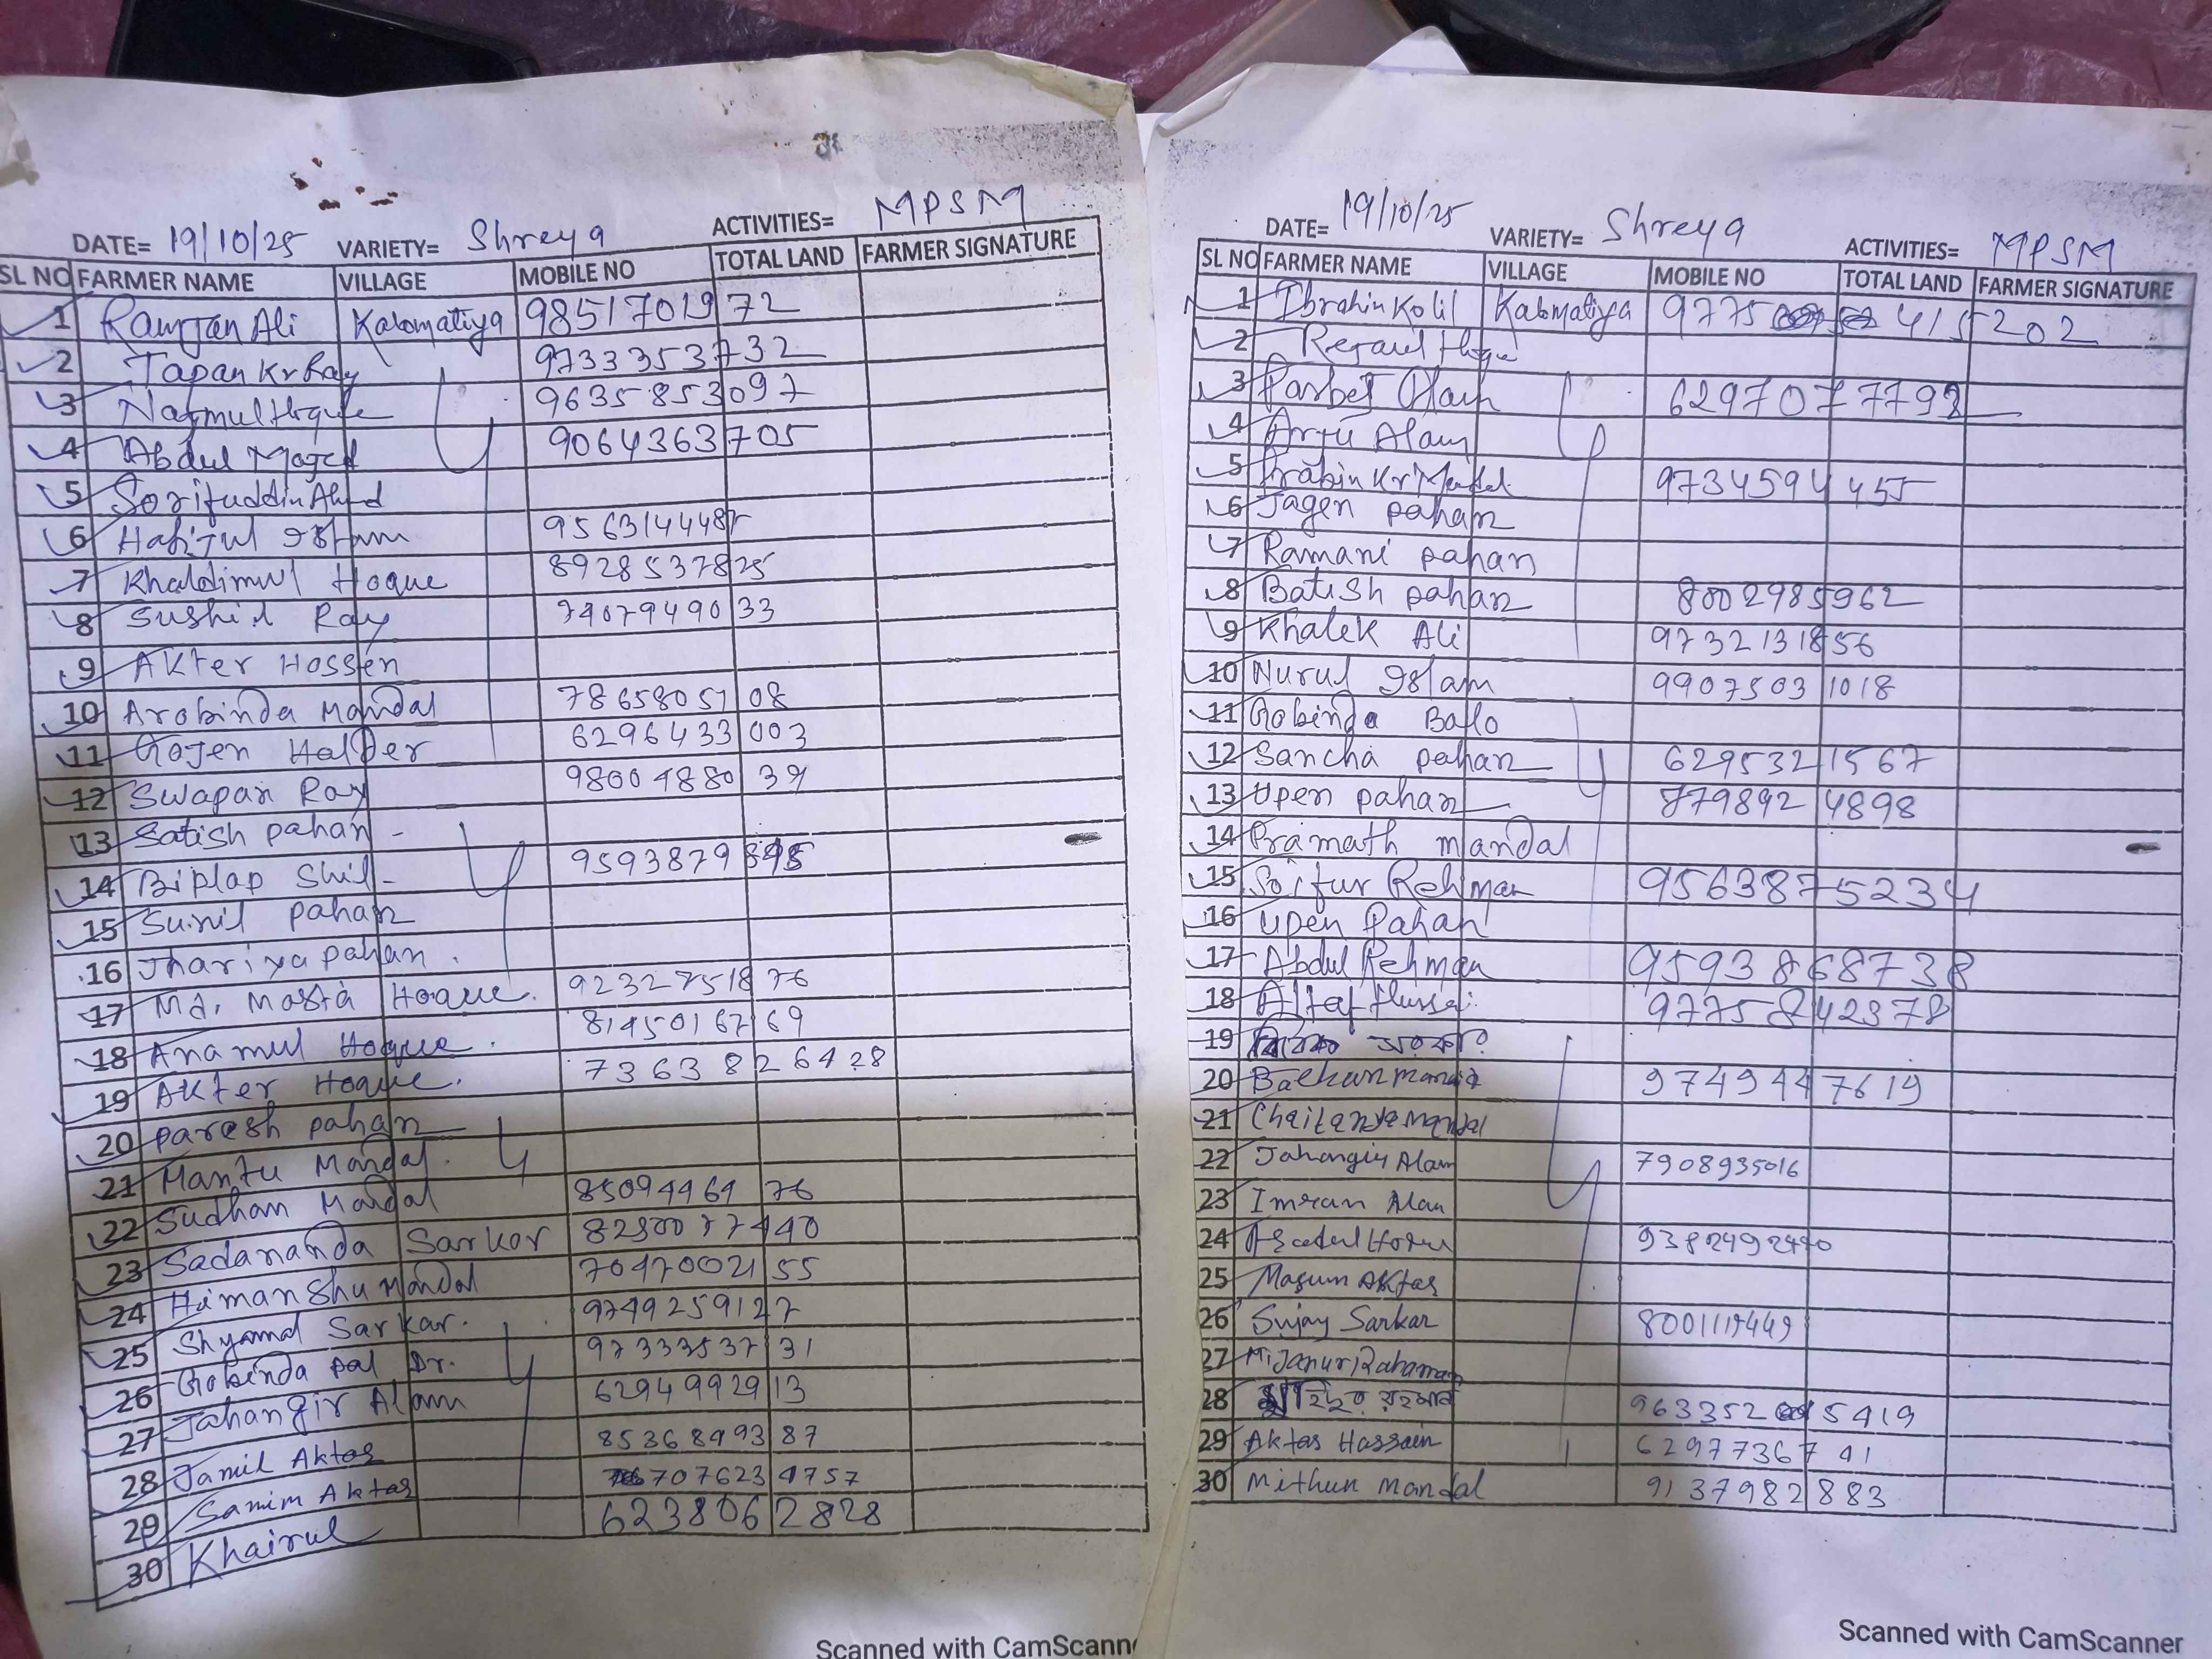 DATE= 19/10/25 VARIETY= Shreya ACTIVITIES= MPSM
SL NO FARMER NAME VILLAGE MOBILE NO TOTAL LAND FARMER SIGNATURE
1 Ramjan Ali Kalomatiya 9851701972
2 Tapan Kr Ray 9733353732
3 Nazmul Hoque 9635853097
4 Abdul Mojed 9064363705
5 Sorifuddin Ahmd
6 Hafijul Islam 956314448
7 Khaldimul Hoque 8928537825
8 Sushil Ray 7407949033
9 Akter Hossen
10 Arobinda Mandal 7865805108
11 Gojen Halder 6296433003
12 Swapan Ray 9800488039
13 Satish pahan
14 Biplap Shil 9593879
15 Sunil pahan
16 Jhariya pahan
17 Md. Mosta Hoque 9232751876
18 Anamul Hoque 8145016769
19 Akter Hoque 7363826428
20 paresh pahan
21 Mantu Mandal
22 Sudhan Mandal 8509446476
23 Sadananda Sarkar 8250077440
24 Himanshu Mandal 7047002155
25 Shyamal Sarkar 9749259127
26 Gobinda pal Dr. 9733353731
27 Jahangir Alam 6294992913
28 Jamil Aktar 8536849387
29 Samim Aktar 7076234757
30 Khairul 6238062828
Scanned with CamScann
DATE= 19/10/25 VARIETY= Shreya ACTIVITIES= MPSM
SL NO FARMER NAME VILLAGE MOBILE NO TOTAL LAND FARMER SIGNATURE
1 Ibrahin Kolil Kalomatiya 9775 415202
2 Rejaul Hoque
3 Parbej Alam 6297077792
4 Arju Alam
5 Prabin Kr Mandal 9734594455
6 Jagen pahan
7 Ramani pahan
8 Batish pahan 8002985962
9 Khalek Ali 9732131856
10 Nurul Islam 99075031018
11 Gobinda Balo
12 Sancha pahan 6295321567
13 Upen pahan 8798924898
14 Pramath mandal
15 Soifur Rehman 9563875234
16 Upen Pahan
17 Abdul Rehman 9593868738
18 Altaf Hussai 9775842378
19 সরকার
20 9749447619
21 Chaitanya Mandal
22 Jahangir Alam 7908935016
23 Imran Alam
24 9382492470
25 Masum Aktar
26 Sujay Sarkar 8001119449
27 Mijanur Rahaman
28 রহমান 963352 5419
29 Aktar Hassain 6297736741
30 Mithun Mandal 9137982883
Scanned with CamScanner